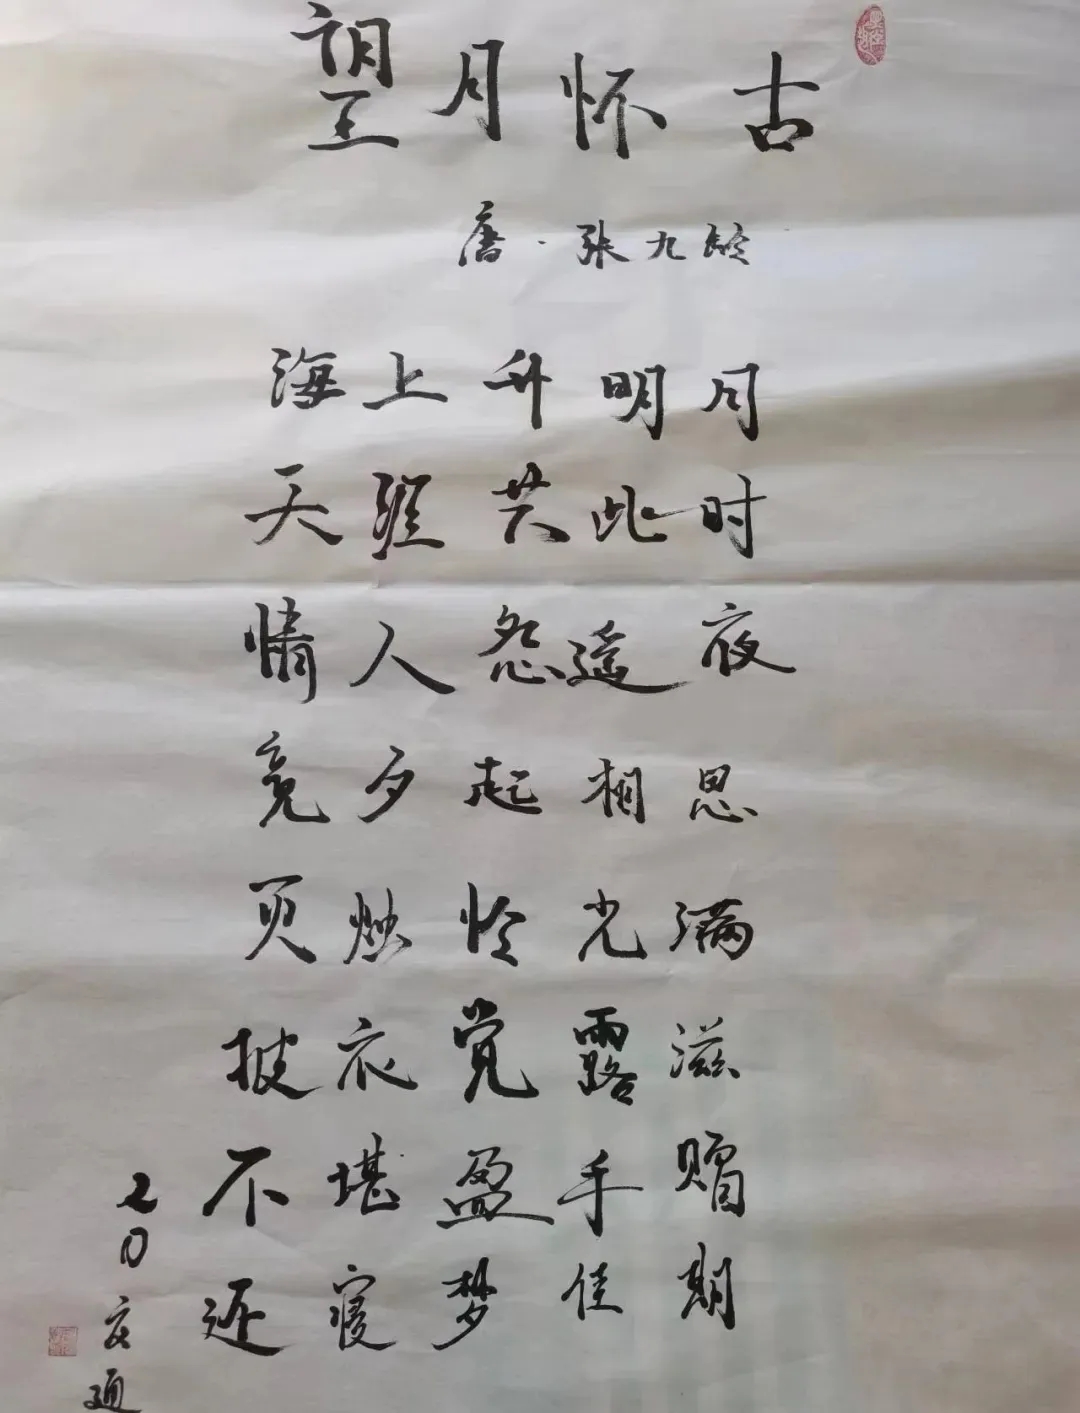 望月怀古
唐·张九龄
海上升明月
天涯共此时
情人怨遥夜
竟夕起相思
灭烛怜光满
披衣觉露滋
不堪盈手赠
还寝梦佳期
通